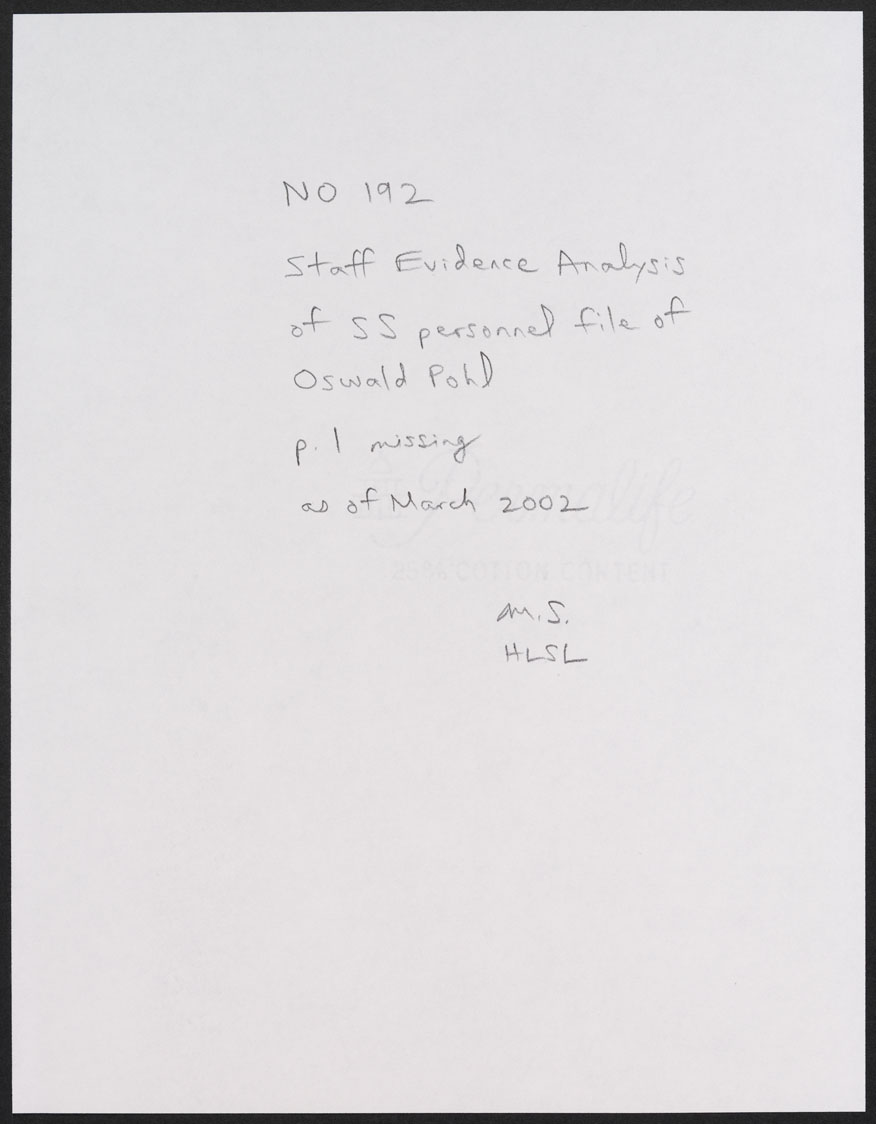 NO 192
Staff Evidence Analysis
of SS personnel file of
Oswald Pohl
p. 1 missing
as of March 2002
Permalife
25% COTTON CONTENT
M.S.
HLSL